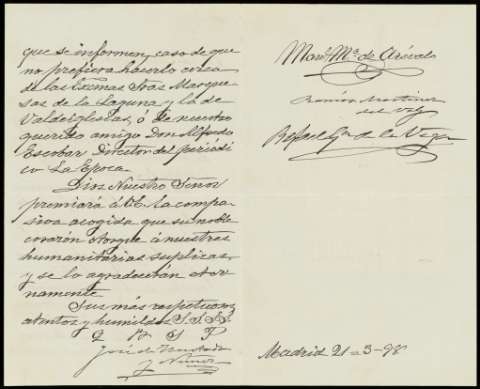 que se informen, caso de que
no prefiera hacerlo cerca
de las Exmas Sras Marque
sas de la Laguna y la de
Valdeiglesias, ó de nuestro
querido amigo Don Alfredo
Escobar Director del periódi
co La Epoca.
Dios Nuestro Señor
premiará á la compa
siva acogida que su noble
corazón otorgue á nuestras
humanitarias suplicas,
y se lo agradecerán eter
namente
Sus más respetuosos
atentos y humildes S.S.S.
José de
y Nuñez
Manl. Ma. de Arévalo
Ramón Martinez
del
Rafael Ga. de la Vega
Madrid 21-3-98